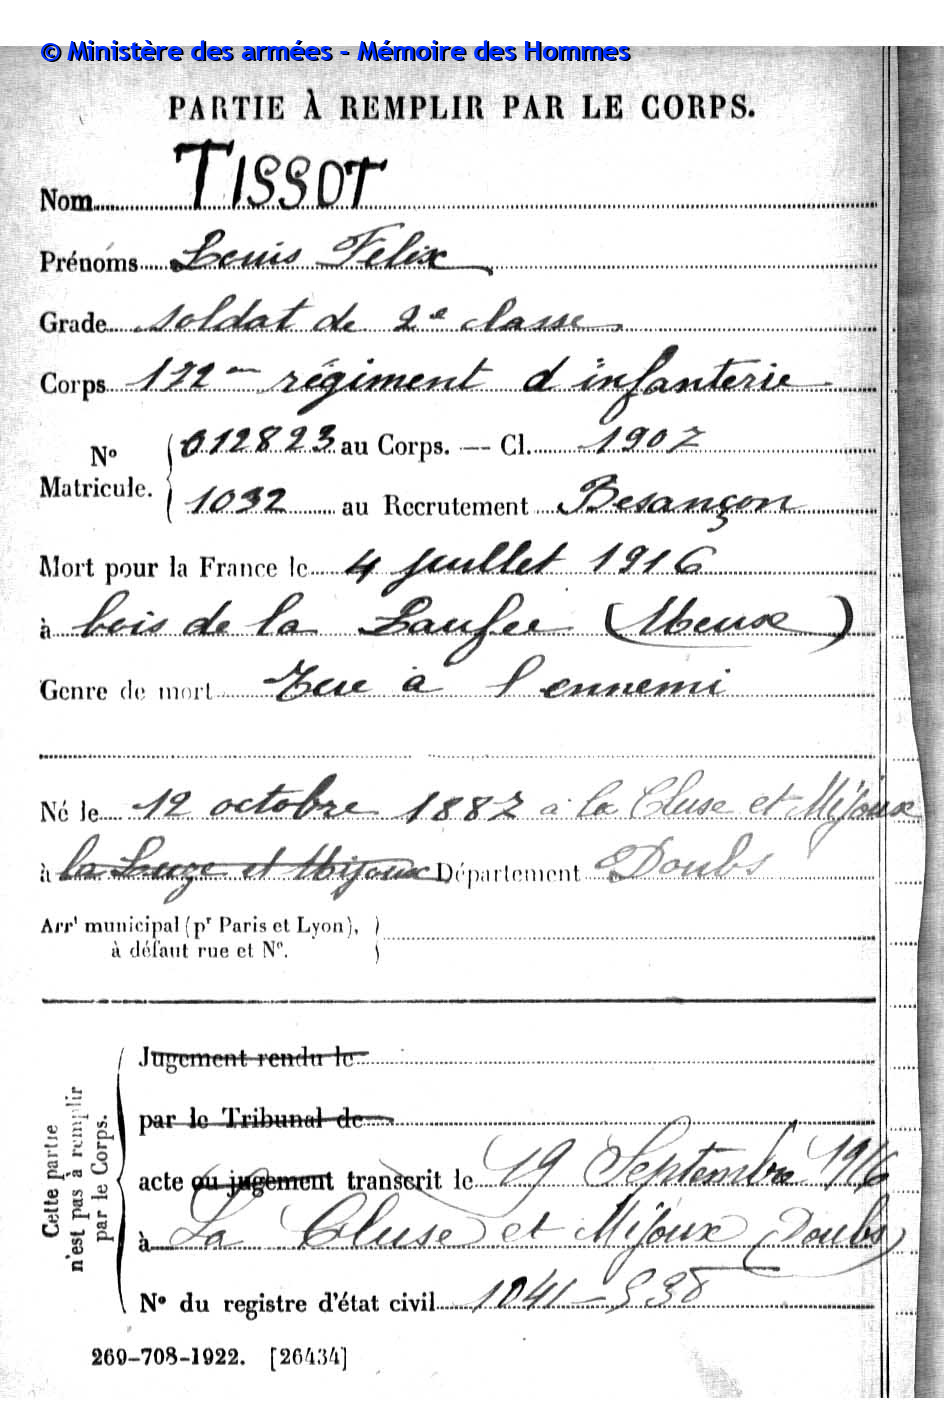 © Ministère des armées - Mémoire des Hommes
PARTIE À REMPLIR PAR LE CORPS.
Nom TISSOT
Prénoms Louis Felix
Grade soldat de 2e classe
Corps 172me régiment d'infanterie
No Matricule. 012823 au Corps. — Cl. 1907
1032 au Recrutement Besançon
Mort pour la France le 4 juillet 1916
à bois de la Laufée (Meuse)
Genre de mort Tué à l'ennemi
Né le 12 octobre 1887 à la Cluse et Mijoux
à la Luze et Mijoux Département Doubs
Arrt municipal (pr Paris et Lyon),
à défaut rue et No.
Cette partie
n'est pas à remplir
par le Corps.
Jugement rendu le
par le Tribunal de
acte ou jugement transcrit le 19 Septembre 1916
à La Cluse et Mijoux (Doubs)
No du registre d'état civil
269-708-1922. [26434]